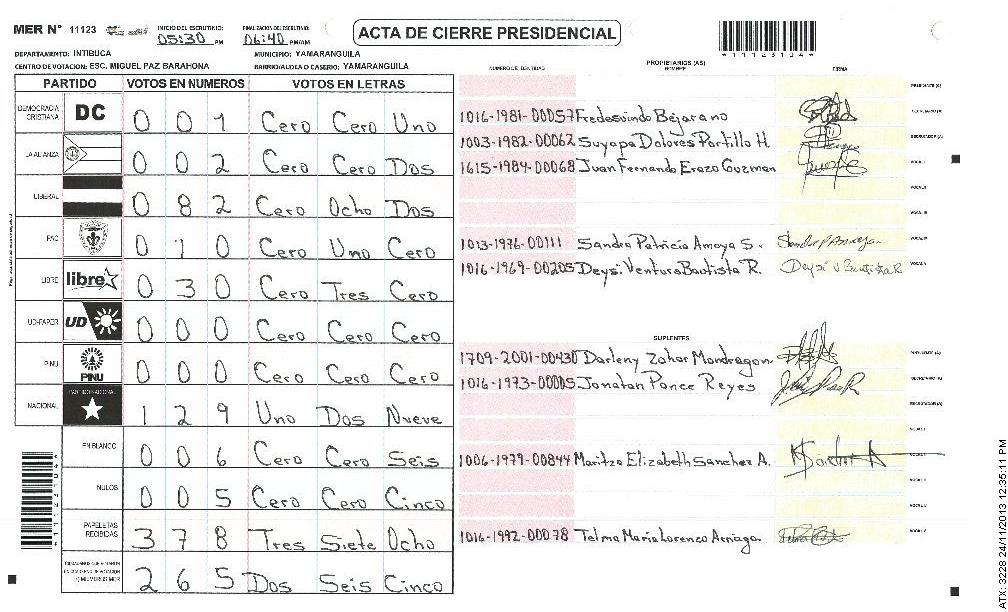 MER N° 11123 INICIO DEL ESCRUTINIO: 05:30 PM FINALIZACION DEL ESCRUTINIO: 06:40 PM/AM ACTA DE CIERRE PRESIDENCIAL
DEPARTAMENTO: INTIBUCA MUNICIPIO: YAMARANGUILA
CENTRO DE VOTACION: ESC. MIGUEL PAZ BARAHONA BARRIO/ALDEA O CASERIO: YAMARANGUILA
PARTIDO VOTOS EN NUMEROS VOTOS EN LETRAS
DEMOCRACIA CRISTIANA DC 0 0 1 Cero Cero Uno
LA ALIANZA 0 0 2 Cero Cero Dos
LIBERAL 0 8 2 Cero Ocho Dos
PAC 0 1 0 Cero Uno Cero
LIBRE libre 0 3 0 Cero Tres Cero
UD-FAPER UD 0 0 0 Cero Cero Cero
PINU PINU 0 0 0 Cero Cero Cero
NACIONAL PARTIDO NACIONAL 1 2 9 Uno Dos Nueve
EN BLANCO 0 0 6 Cero Cero Seis
NULOS 0 0 5 Cero Cero Cinco
PAPELETAS RECIBIDAS 3 7 8 Tres Siete Ocho
2 6 5 Dos Seis Cinco
NUMERO DE IDENTIDAD PROPIETARIOS (AS) NOMBRE FIRMA
PRESIDENTE (A)
1016-1981-00057 Fredesvindo Bejarano SECRETARIO (A)
1003-1982-00062 Suyapa Dolores Portillo H. ESCRUTADOR (A)
1615-1984-00068 Juan Fernando Erazo Guzman VOCAL I
VOCAL II
VOCAL III
1013-1976-00111 Sandra Patricia Amaya S. VOCAL IV
1016-1969-00205 Deysi Ventura Bautista R. Deysi V Bautista R VOCAL V
SUPLENTES
1709-2001-00430 Darleny Zohar Mondragon PRESIDENTE (A)
1016-1973-00005 Jonatan Ponce Reyes SECRETARIO (A)
ESCRUTADOR (A)
VOCAL I
1006-1979-00844 Maritza Elizabeth Sanchez A.
VOCAL IV
1016-1992-00078 Telma Maria Lorenzo Arriaga VOCAL V
*11123104*
ATX: 3228 24/11/2013 12:35:11 PM